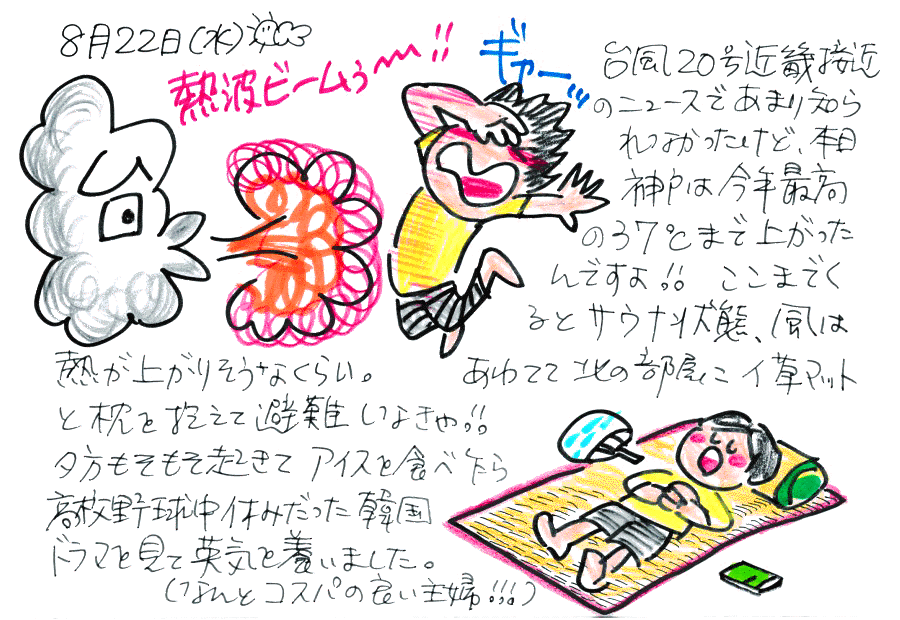 8月22日(水)
熱波ビームぅ〜!!
ギャー
台風20号近畿接近
のニュースであまり知ら
れなかったけど、本日
神戸は今年最高
の37℃まで上がった
んですよ!! ここまでく
るとサウナ状態、風は
熱が上がりそうなくらい。
あわてて北の部屋にイ草マット
と枕を抱えて避難しなきゃ!!
夕方もそもそ起きてアイスを食べたら
高校野球中休みだった韓国
ドラマを見て英気を養いました。
(なんとコスパの良い主婦!!!)